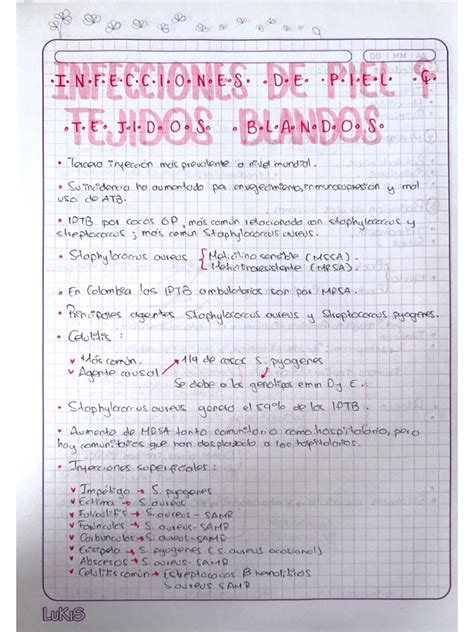 AA | MM | DD
INFECCIONES DE PIEL Y
TEJIDOS BLANDOS
• Tercera infección más prevalente a nivel mundial.
• Su incidencia ha aumentado por envejecimiento, inmunosupresion y mal
uso de ATB.
• IPTB por cocos GP, más común relacionado con staphylococcus y
streptococcus; más común Staphylococcus aureus.
• Staphylococcus aureus { Meticilino sensible (MSSA).
Meticilinoresistente (MRSA).
• En Colombia las IPTB ambulatorias son por MRSA.
• Principales agentes Staphylococcus aureus y Streptococcus pyogenes.
• Celulitis:
Más común.
Agente causal → 1/4 de casos S. pyogenes
Se debe a los genotipos emm D y E.
• Staphylococcus aureus genera el 59% de las IPTB.
• Aumento de MRSA tanto comunitario como hospitalario, pero
hay comunitarios que han desplazado a los hospitalarios.
• Infecciones superficiales:
Impétigo → S. pyogenes
Ectima → S. aureus
Foliculitis → S. aureus-SAMR
Forúnculos → S. aureus-SAMR
Carbunculos → S. aureus-SAMR
Erisipela → S. pyogenes (S. aureus ocasional)
Abscesos → S. aureus-SAMR
Celulitis común → Estreptococos β hemolíticos
S. aureus SAMR
LUKIS